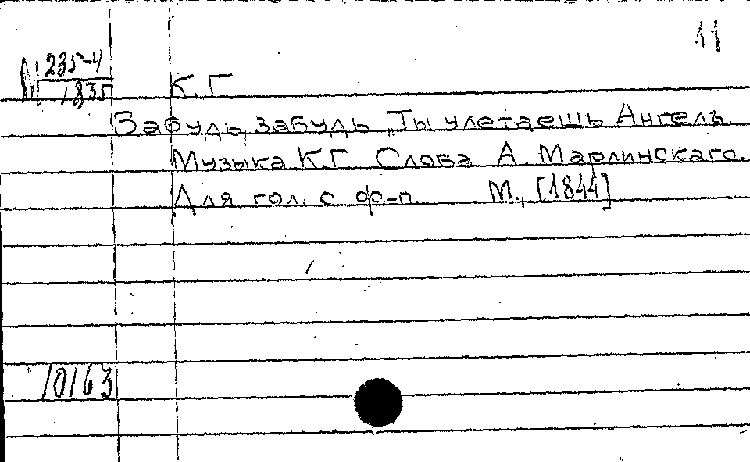 11
М 235-4
1835
К. Г
Забудь, забудь „Ты улетаешь Ангелъ
Музыка К.Г. Слова А. Марлинскаго.
Для гол. с ф-п М., [1844]
10163